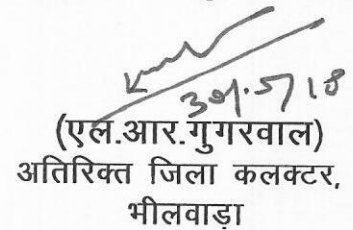 30/5/18
(एल.आर.गुगरवाल)
अतिरिक्त जिला कलक्टर,
भीलवाड़ा